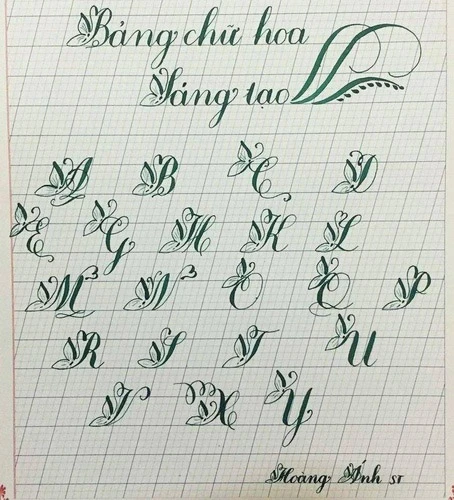 Bảng chữ hoa
Sáng tạo
A B C D
E G H K L
M N O Q P
R S T U
V X Y
Hoàng Ánh ST